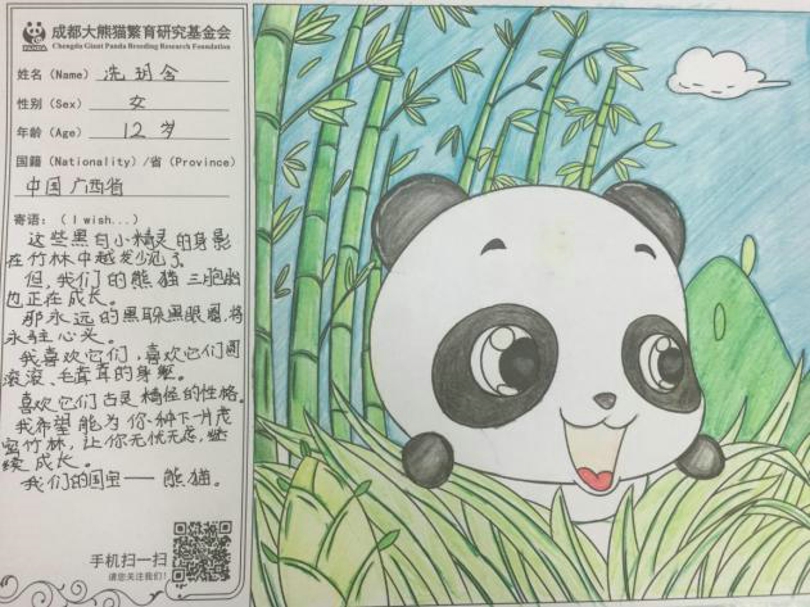 成都大熊猫繁育研究基金会
Chengdu Giant Panda Breeding Research Foundation
PANDA
姓名（Name） 冼玥含
性别（Sex） 女
年龄（Age） 12 岁
国籍（Nationality）/省（Province）
中国 广西省
寄语：（I wish...）
这些黑白小精灵的身影
在竹林中越发少见了。
但，我们的熊猫三胞胎
也正在成长。
那永远的黑耳黑眼圈，将
永驻心头。
我喜欢它们，喜欢它们圆
滚滚、毛茸茸的身躯。
喜欢它们古灵精怪的性格。
我希望能为你种下一片茂
密竹林，让你无忧无虑，继
续成长。
我们的国宝——熊猫。
手机扫一扫
请您关注我们！